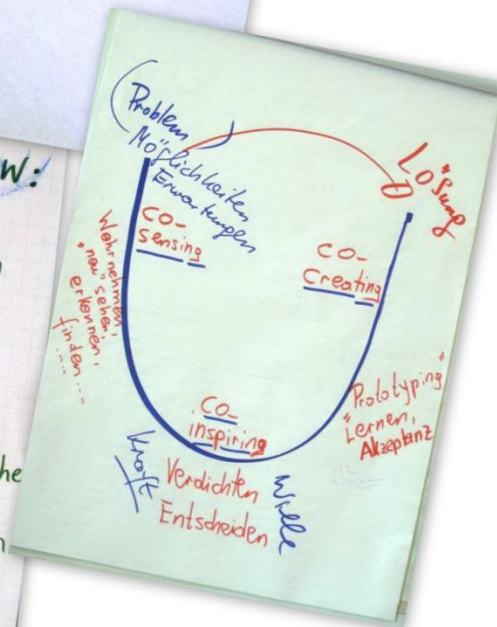 w:
he
n
(Problem)
Möglichkeiten
Erwartungen
LÖsung
co-
sensing
co-
Creating
Wahrnehmen,
"neu" sehen,
erkennen,
finden....
.....
"Prototyping"
Lernen,
Akzeptanz
co-
inspiring
Kraft
Verdichten
Entscheiden
Wille